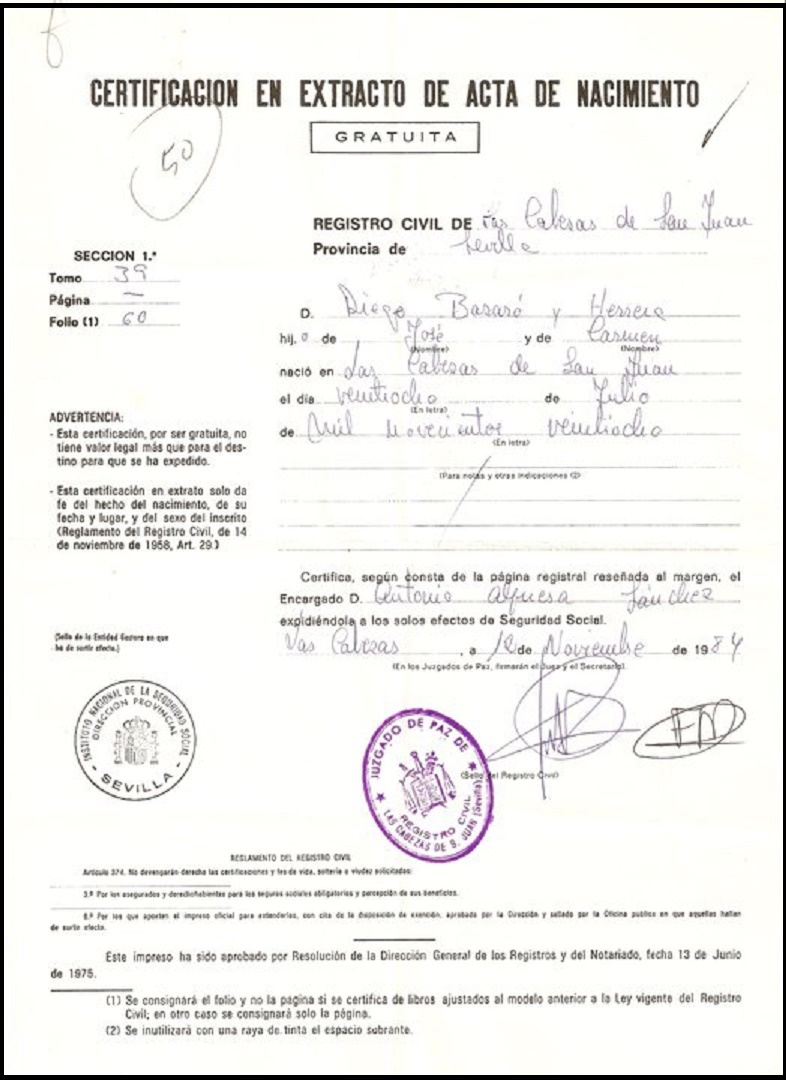 CERTIFICACION EN EXTRACTO DE ACTA DE NACIMIENTO
GRATUITA
50
REGISTRO CIVIL DE Las Cabesas de San Juan
Provincia de Sevilla
SECCION 1.ª
Tomo 39
Página —
Folio (1) 60
D. Diego Basaró y Herrera
hij o de José y de Carmen
(Nombre) (Nombre)
nació en Las Cabesas de San Juan
el día veintiocho de Julio
(En letra)
de Mil novecientos veintiocho
(En letra)
(Para notas y otras indicaciones (2)
ADVERTENCIA:
- Esta certificación, por ser gratuita, no
tiene valor legal más que para el des-
tino para que se ha expedido.
- Esta certificación en extrato solo da
fe del hecho del nacimiento, de su
fecha y lugar, y del sexo del inscrito
(Reglamento del Registro Civil, de 14
de noviembre de 1958, Art. 29.)
Certifica, según consta de la página registral reseñada al margen, el
Encargado D. Antonio Sánchez
expidiéndola a los solos efectos de Seguridad Social.
Las Cabezas, a de Noviembre de 1984
(En los Juzgados de Paz, firmarán el Juez y el Secretario).
(Sello de la Entidad Gestora en que
ha de surtir efecto.)
INSTITUTO NACIONAL DE LA SEGURIDAD SOCIAL
DIRECCION PROVINCIAL
- SEVILLA -
JUZGADO DE PAZ DE
REGISTRO CIVIL
LAS CABEZAS DE S. JUAN (Sevilla)
(Sello del Registro Civil)
REGLAMENTO DEL REGISTRO CIVIL
Artículo 374. No devengarán derecho las certificaciones y fes de vida, soltería o viudez solicitados:
3.º Por los asegurados y derechohabientes para los seguros sociales obligatorios y percepción de sus beneficios.
6.º Por los que aporten el impreso oficial para extenderlas, con cita de la disposición de exención, aprobado por la Dirección y sellado por la Oficina pública en que aquellas hallan
de surtir efecto.
Este impreso ha sido aprobado por Resolución de la Dirección General de los Registros y del Notariado, fecha 13 de Junio
de 1975.
(1) Se consignará el folio y no la página si se certifica de libros ajustados al modelo anterior a la Ley vigente del Registro
Civil; en otro caso se consignará solo la página.
(2) Se inutilizará con una raya de tinta el espacio subrante.